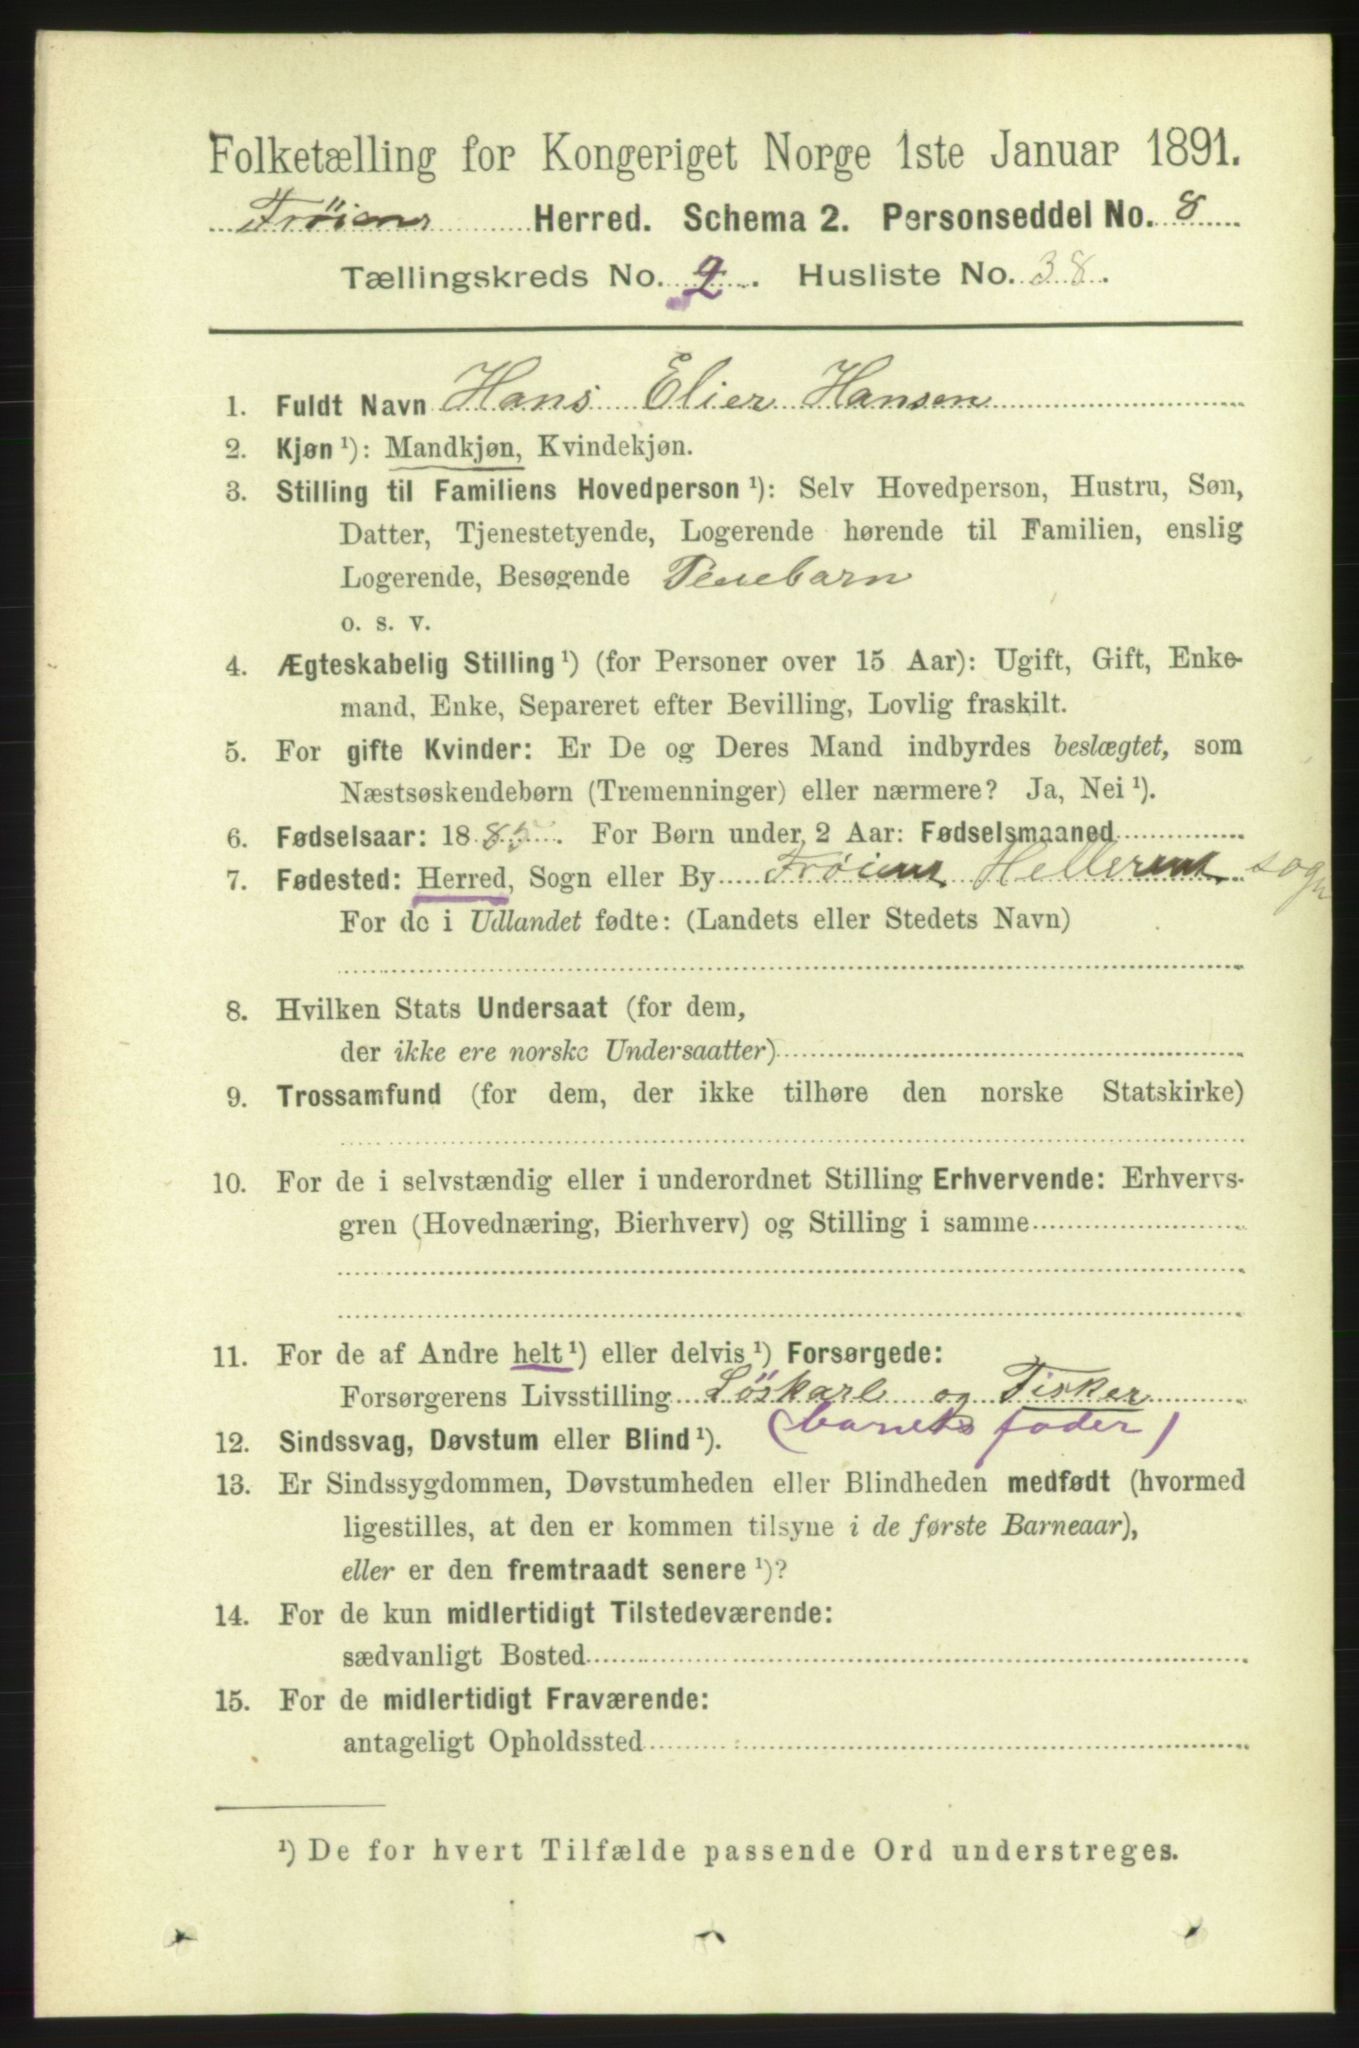 Folketælling for Kongeriget Norge 1ste Januar 1891.
Frøiens Herred. Schema 2. Personseddel No. 8
Tællingskreds No. 2. Husliste No. 38.
1. Fuldt Navn Hans Elier Hansen
2. Kjøn ¹): Mandkjøn, Kvindekjøn.
3. Stilling til Familiens Hovedperson ¹): Selv Hovedperson, Hustru, Søn,
Datter, Tjenestetyende, Logerende hørende til Familien, enslig
Logerende, Besøgende Pleiebarn
o. s. v.
4. Ægteskabelig Stilling ¹) (for Personer over 15 Aar): Ugift, Gift, Enke-
mand, Enke, Separeret efter Bevilling, Lovlig fraskilt.
5. For gifte Kvinder: Er De og Deres Mand indbyrdes beslægtet, som
Næstsøskendebørn (Tremenninger) eller nærmere? Ja, Nei ¹).
6. Fødselsaar: 1885. For Børn under 2 Aar: Fødselsmaaned
7. Fødested: Herred, Sogn eller By Fröiens sogn
For de i Udlandet fødte: (Landets eller Stedets Navn)
8. Hvilken Stats Undersaat (for dem,
der ikke ere norske Undersaatter)
9. Trossamfund (for dem, der ikke tilhøre den norske Statskirke)
10. For de i selvstændig eller i underordnet Stilling Erhvervende: Erhvervs-
gren (Hovednæring, Bierhverv) og Stilling i samme
11. For de af Andre helt ¹) eller delvis ¹) Forsørgede:
Forsørgerens Livsstilling Löskarl og Fisker
(barnets fader)
12. Sindssvag, Døvstum eller Blind ¹).
13. Er Sindssygdommen, Døvstumheden eller Blindheden medfødt (hvormed
ligestilles, at den er kommen tilsyne i de første Barneaar),
eller er den fremtraadt senere ¹)?
14. For de kun midlertidigt Tilstedeværende:
sædvanligt Bosted
15. For de midlertidigt Fraværende:
antageligt Opholdssted
¹) De for hvert Tilfælde passende Ord understreges.